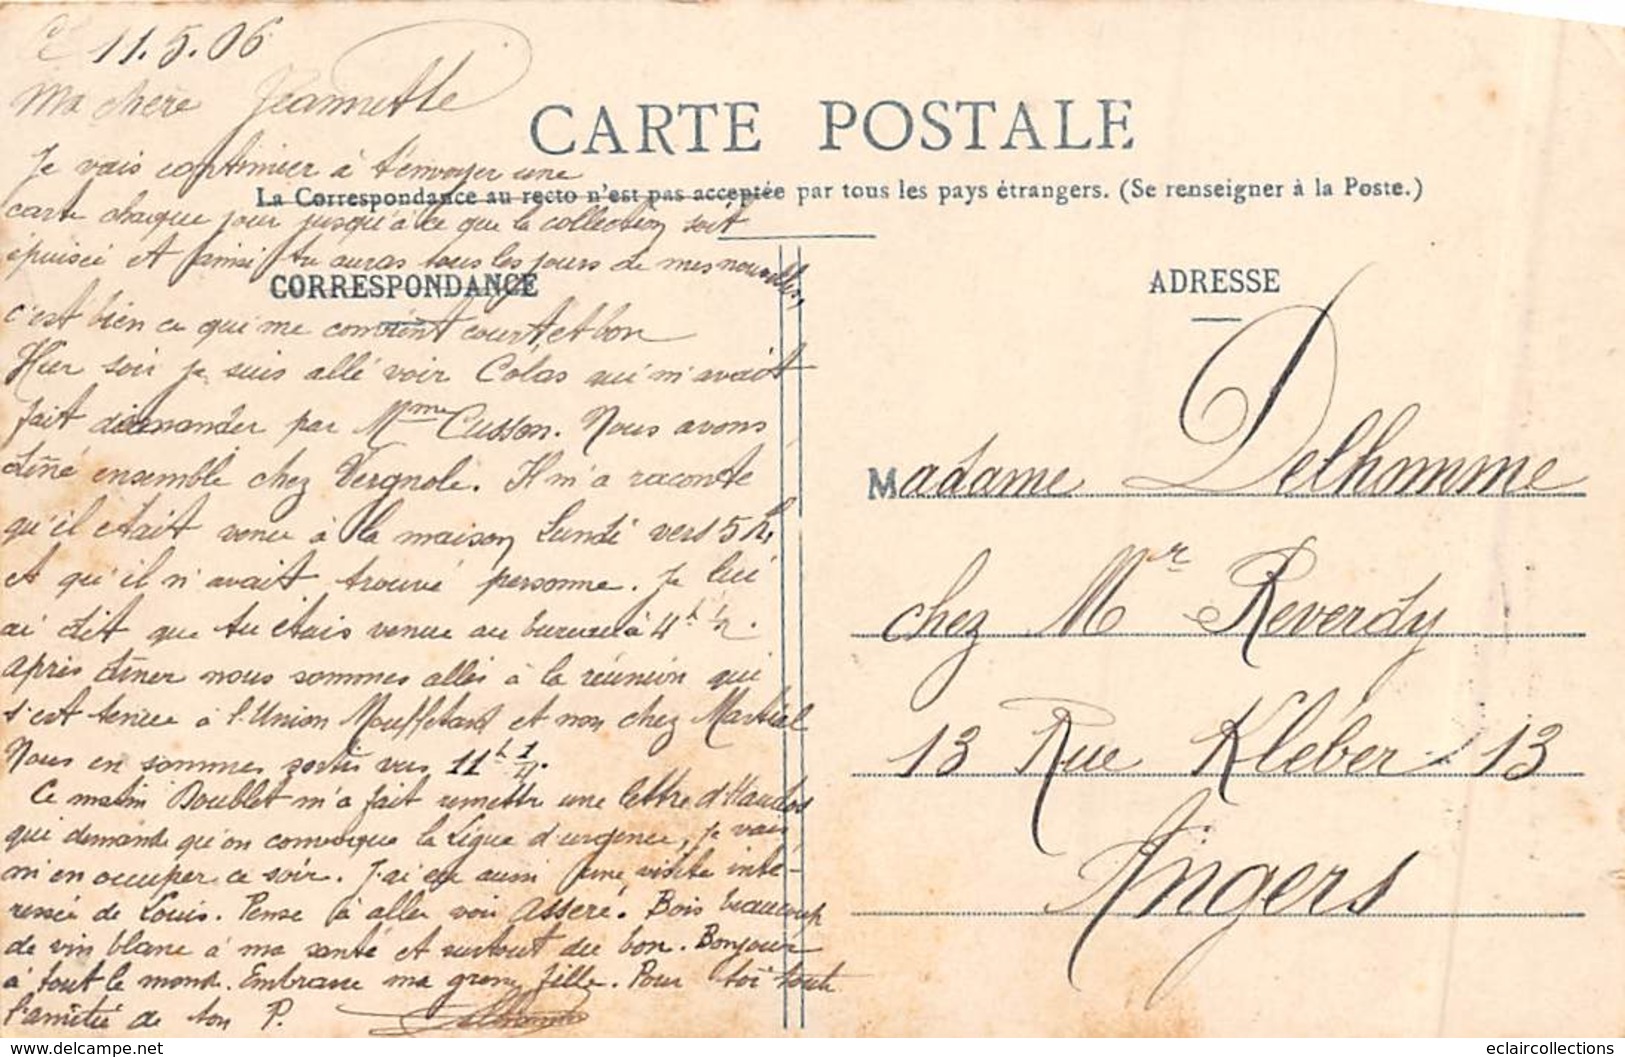 Ce 11.5.06
Ma chère Jeannette
CARTE POSTALE
La Correspondance au recto n'est pas acceptée par tous les pays étrangers. (Se renseigner à la Poste.)
CORRESPONDANCE
Je vais continuer à t'envoyer une
carte chaque jour jusqu'à ce que la collection soit
épuisée et ainsi tu auras tous les jours de mes nouvelles,
c'est bien ce qui me convient court, et bon
Hier soir je suis allé voir Colas qui m'avait
fait demander par Mme Cusson. Nous avons
diné ensemble chez Vergnole. Il m'a raconté
qu'il était venu à la maison Lundi vers 5 h,
et qu'il n'avait trouvé personne. Je lui
ai dit que tu étais venue au bureau à 4h 1/2.
après diner nous sommes allés à la réunion qui
s'est tenue à l'Union Mouffetard et non chez Martial
Nous en sommes sortis vers 11h 1/4.
Ce matin Doublet m'a fait remettre une lettre d'
qui demande qu'on convoque la Ligue d'urgence, je vais
m'en occuper ce soir. J'ai eu aussi une visite inté-
ressée de Louis. Pense à aller voir Asseré. Bois beaucoup
de vin blanc à ma santé et surtout du bon. Bonjour
à tout le monde. Embrasse ma grande fille. Pour toi toute
l'amitié de ton P. Delhomme
ADRESSE
Madame Delhomme
chez Mr Reverdy
13 Rue Kléber 13
Angers
eclaircollections.com
eclaircollections